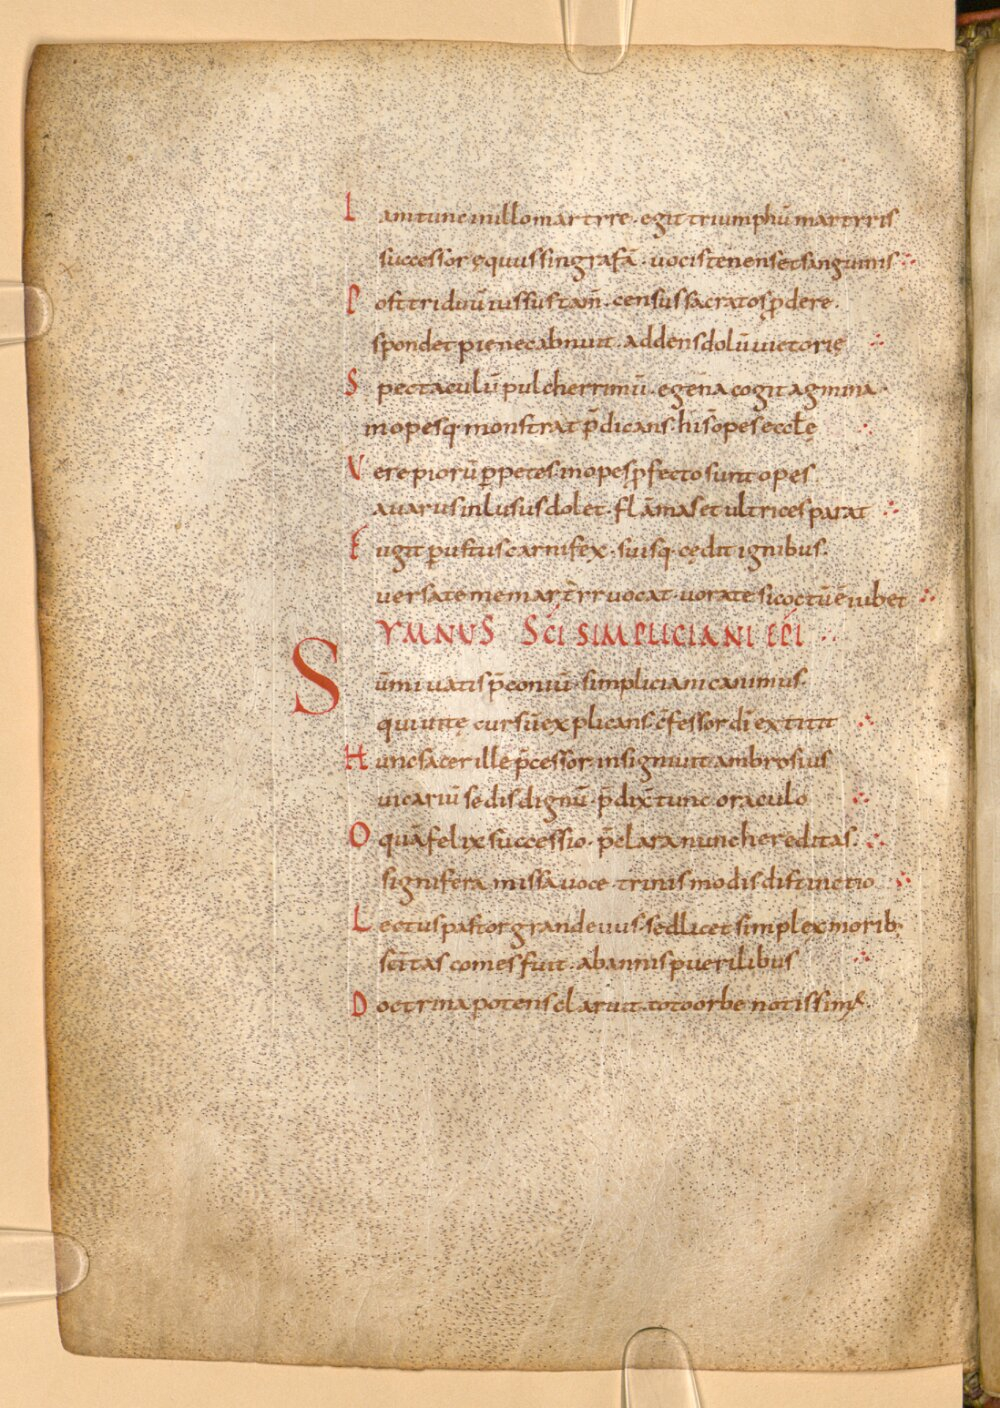 I am tunc in illo martyre · egit triumphū martyris
successor ęquus singrafā · uocis tenens et sanguinis
Post triduū iussus tam̄ · census sacratos ꝓdere ·
spondet pie nec abnuit · addens dolū uictorię
Spectaculū pulcherrimū · egena cogit agmina ·
inopesq· monstrat p̄dicans · hi s̄ opes ecclę
Vere piorū ꝑpetes · inopes ꝓfecto sunt opes
auarus inlusus dolet · flāmas et ultrices parat
Fugit ꝑustus carnifex · suisq· cędit ignibus ·
versate me martẏr uocat · uorate si coctū ē iubet
YMNUS SC̄I SIMPLICIANI EP̄I
Sūmi uatis p̄coniū · simpliciani canimus ·
qui uitę cursū explicans · c̄fessor dī extitit
Hunc sacer ille p̄cessor · insigniuit ambrosius
uicariū sedis dignū · p̄dix̄ tunc oraculo
O quā felix successio · p̄clara nunc hereditas ·
signifera missa uoce · trinis modis distinctio
Lectus pastor grandeuus · sed licet simplex morib;
sc̄itas comes fuit · ab annis puerilibus
Doctrina potens claruit · toto orbe notissimꝰ ·